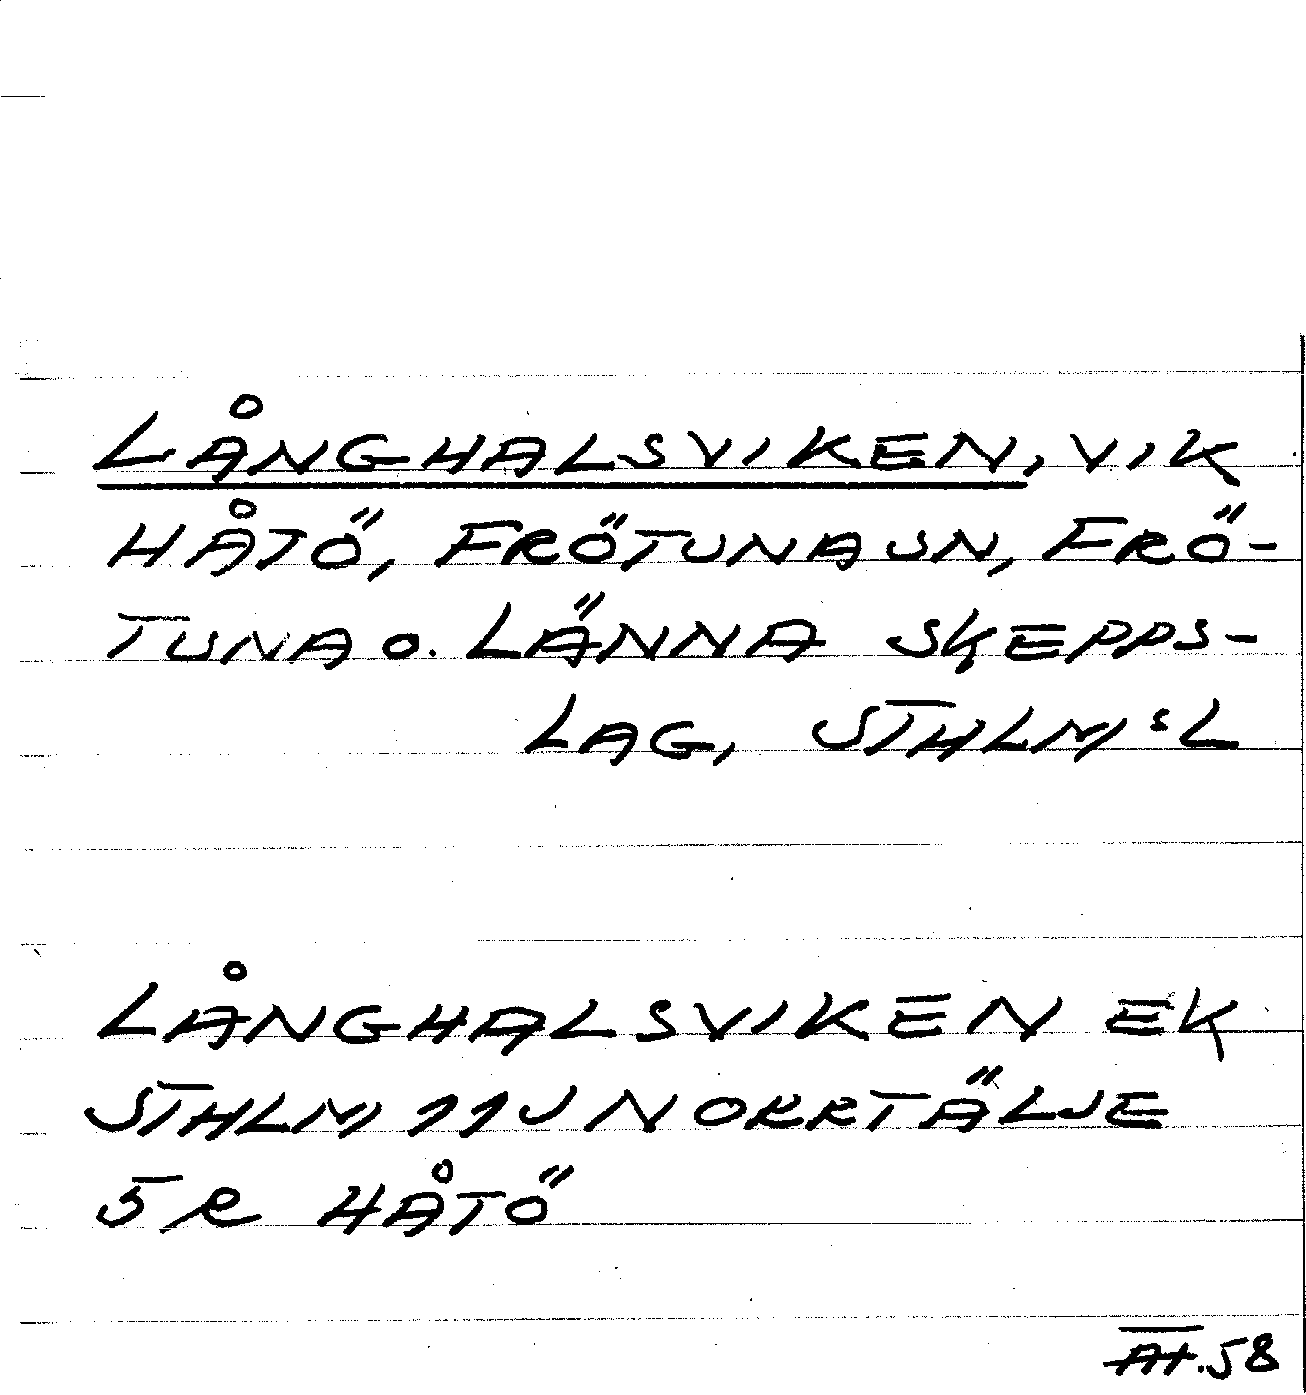 LÅNGHALSVIKEN, VIK
HÅTÖ, FRÖTUNA SN, FRÖ-
TUNA O. LÄNNA SKEPPS-
LAG, STHLM:S L
LÅNGHALSVIKEN EK
STHLM 11J NORRTÄLJE
5R HÅTÖ
.58